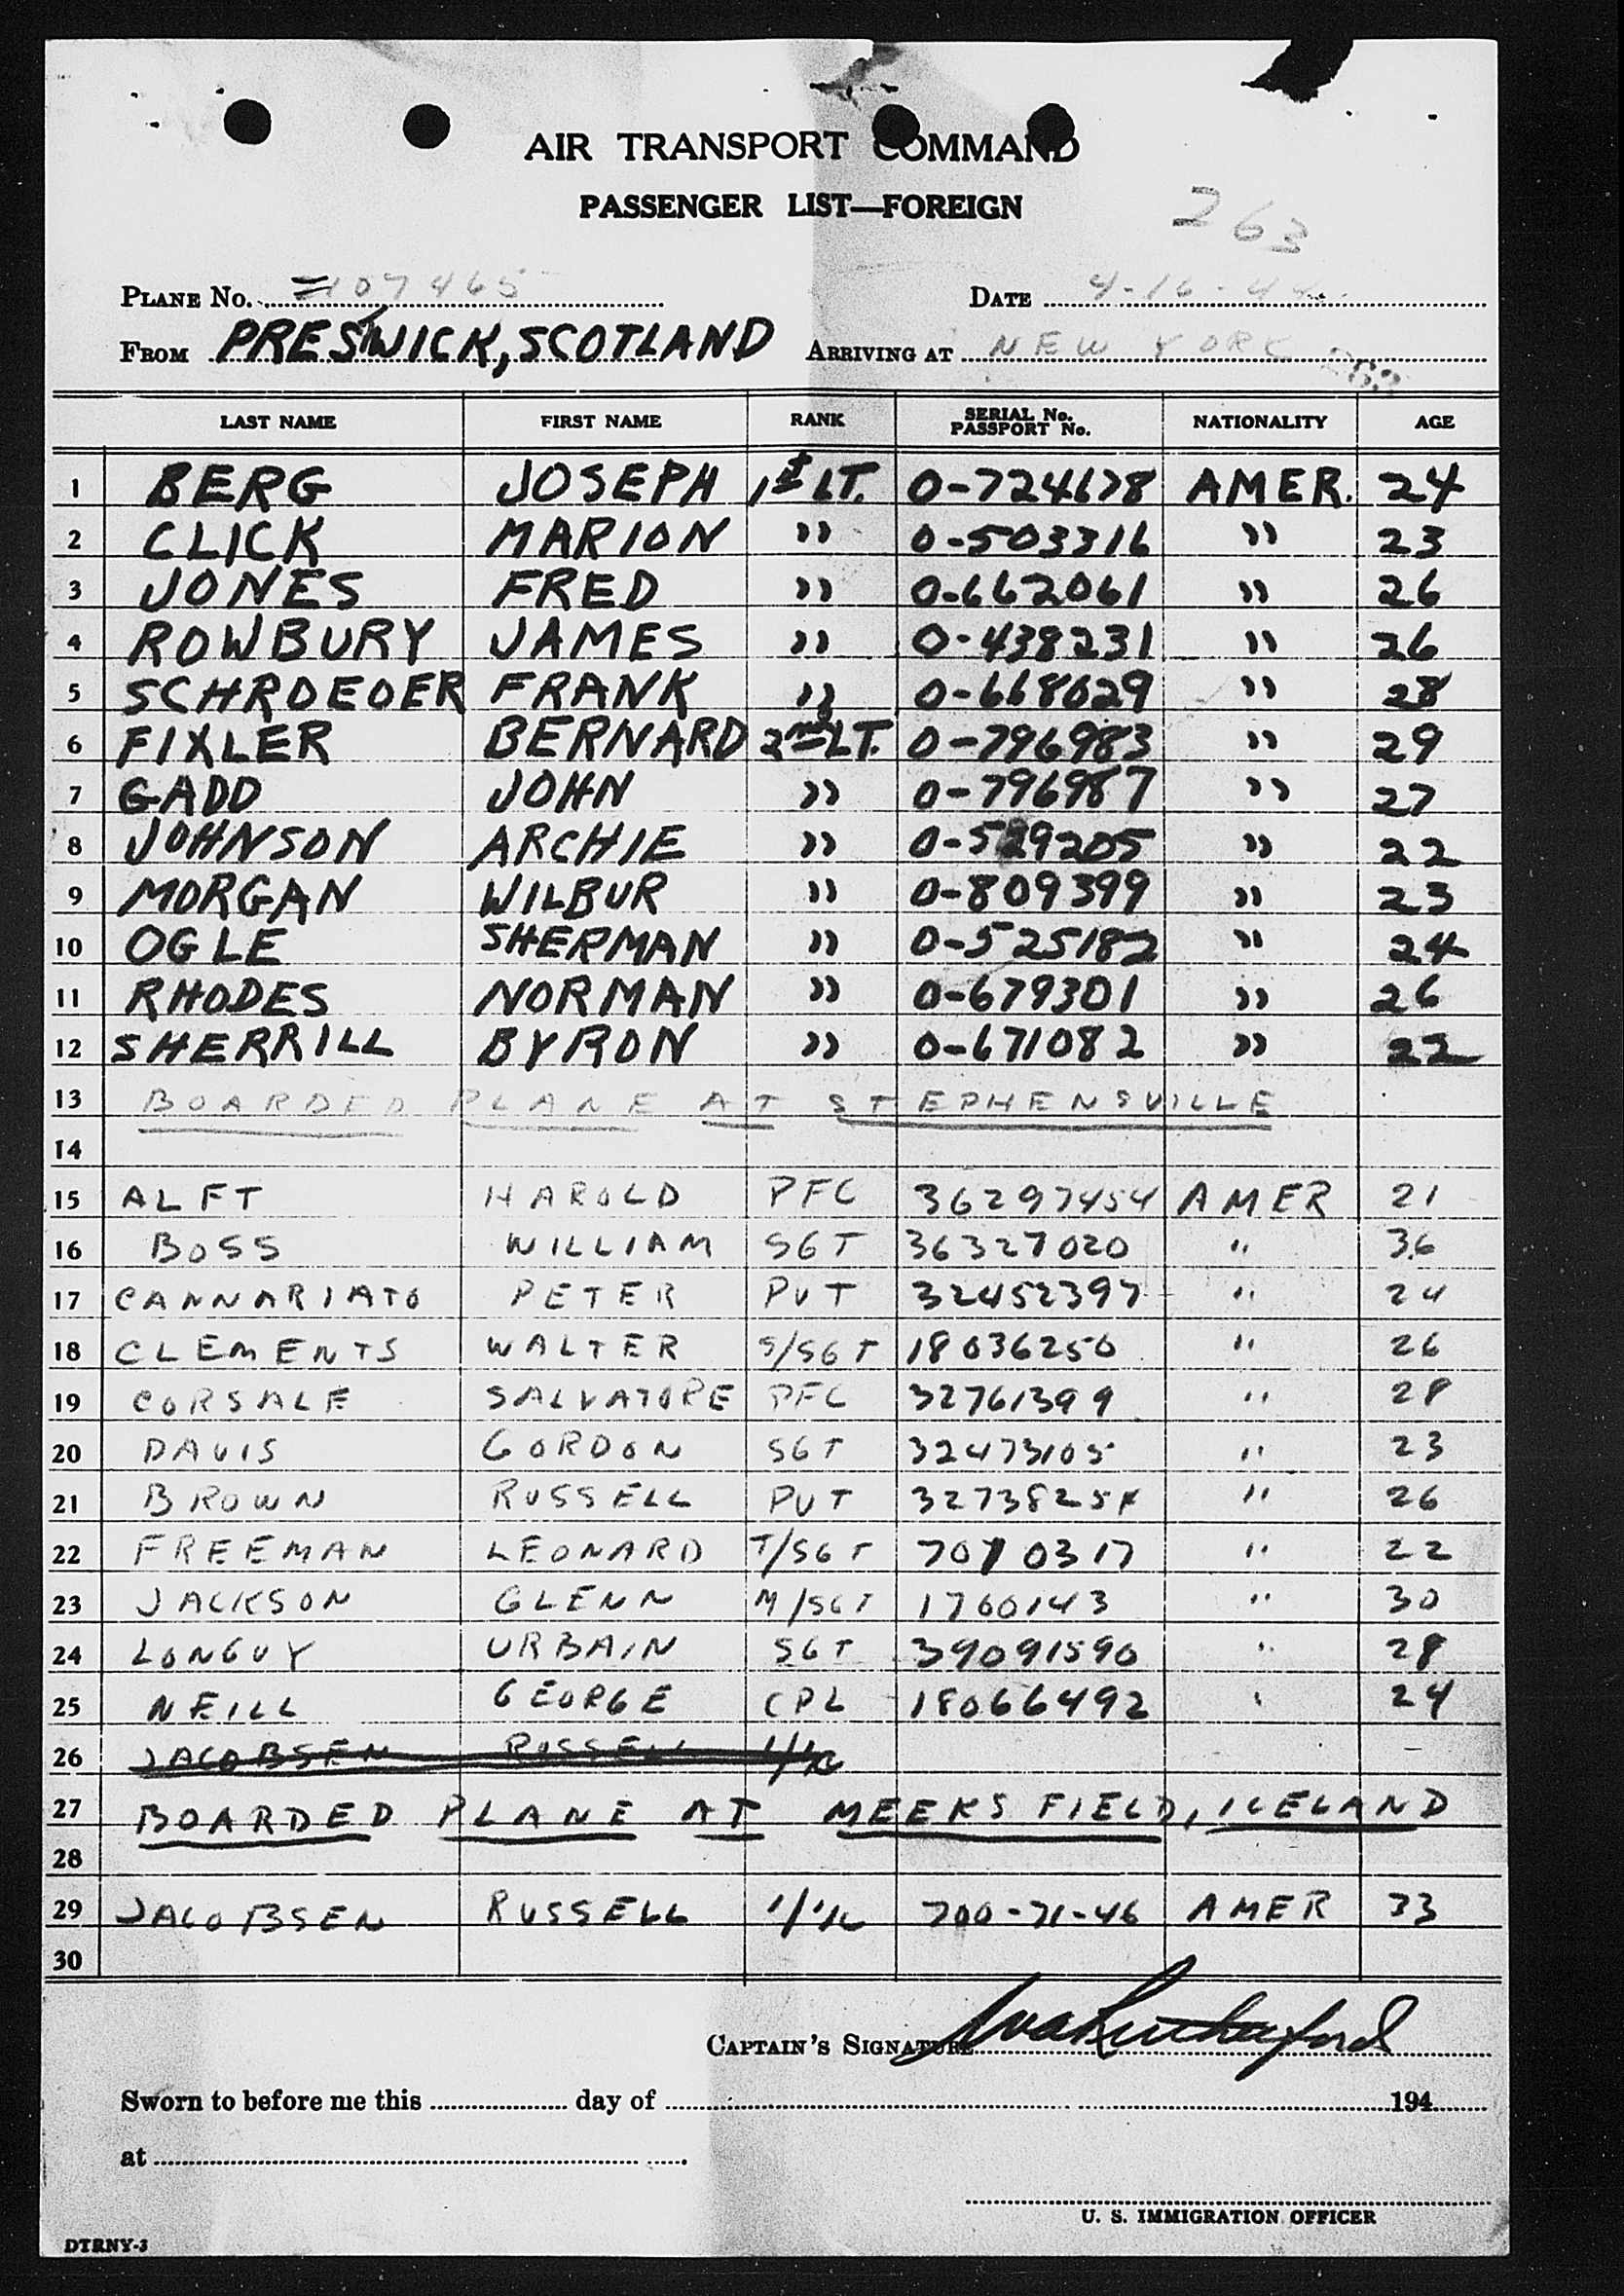 AIR TRANSPORT COMMAND
PASSENGER LIST—FOREIGN
263
PLANE No. 107465 DATE 4-16-44
FROM PRESTWICK, SCOTLAND ARRIVING AT NEW YORK
LAST NAME FIRST NAME RANK SERIAL No. PASSPORT No. NATIONALITY AGE
1 BERG JOSEPH 1st LT. 0-724678 AMER. 24
2 CLICK MARION " 0-503316 " 23
3 JONES FRED " 0-662061 " 26
4 ROWBURY JAMES " 0-438231 " 26
5 SCHROEDER FRANK " 0-668029 " 28
6 FIXLER BERNARD 2nd LT. 0-796983 " 29
7 GADD JOHN " 0-796987 " 27
8 JOHNSON ARCHIE " 0-529205 " 22
9 MORGAN WILBUR " 0-809399 " 23
10 OGLE SHERMAN " 0-525182 " 24
11 RHODES NORMAN " 0-679301 " 26
12 SHERRILL BYRON " 0-671082 " 22
13 BOARDED PLANE AT STEPHENSVILLE
14
15 ALFT HAROLD PFC 36297454 AMER 21
16 BOSS WILLIAM SGT 36327020 " 36
17 CANNARIATO PETER PVT 32452397 " 24
18 CLEMENTS WALTER S/SGT 18036250 " 26
19 CORSALE SALVATORE PFC 32761399 " 28
20 DAVIS GORDON SGT 32473105 " 23
21 BROWN RUSSELL PVT 32738254 " 26
22 FREEMAN LEONARD T/SGT 7070317 " 22
23 JACKSON GLENN M/SGT 1760143 " 30
24 LONGUY URBAIN SGT 39091590 " 28
25 NEILL GEORGE CPL 18066492 " 24
26 JACOBSEN RUSSELL 1/1/C
27 BOARDED PLANE AT MEEKS FIELD, ICELAND
28
29 JACOBSEN RUSSELL 1/1/C 700-71-46 AMER 33
30
CAPTAIN'S SIGNATURE
Sworn to before me this day of 194
at
U. S. IMMIGRATION OFFICER
DTRNY-3